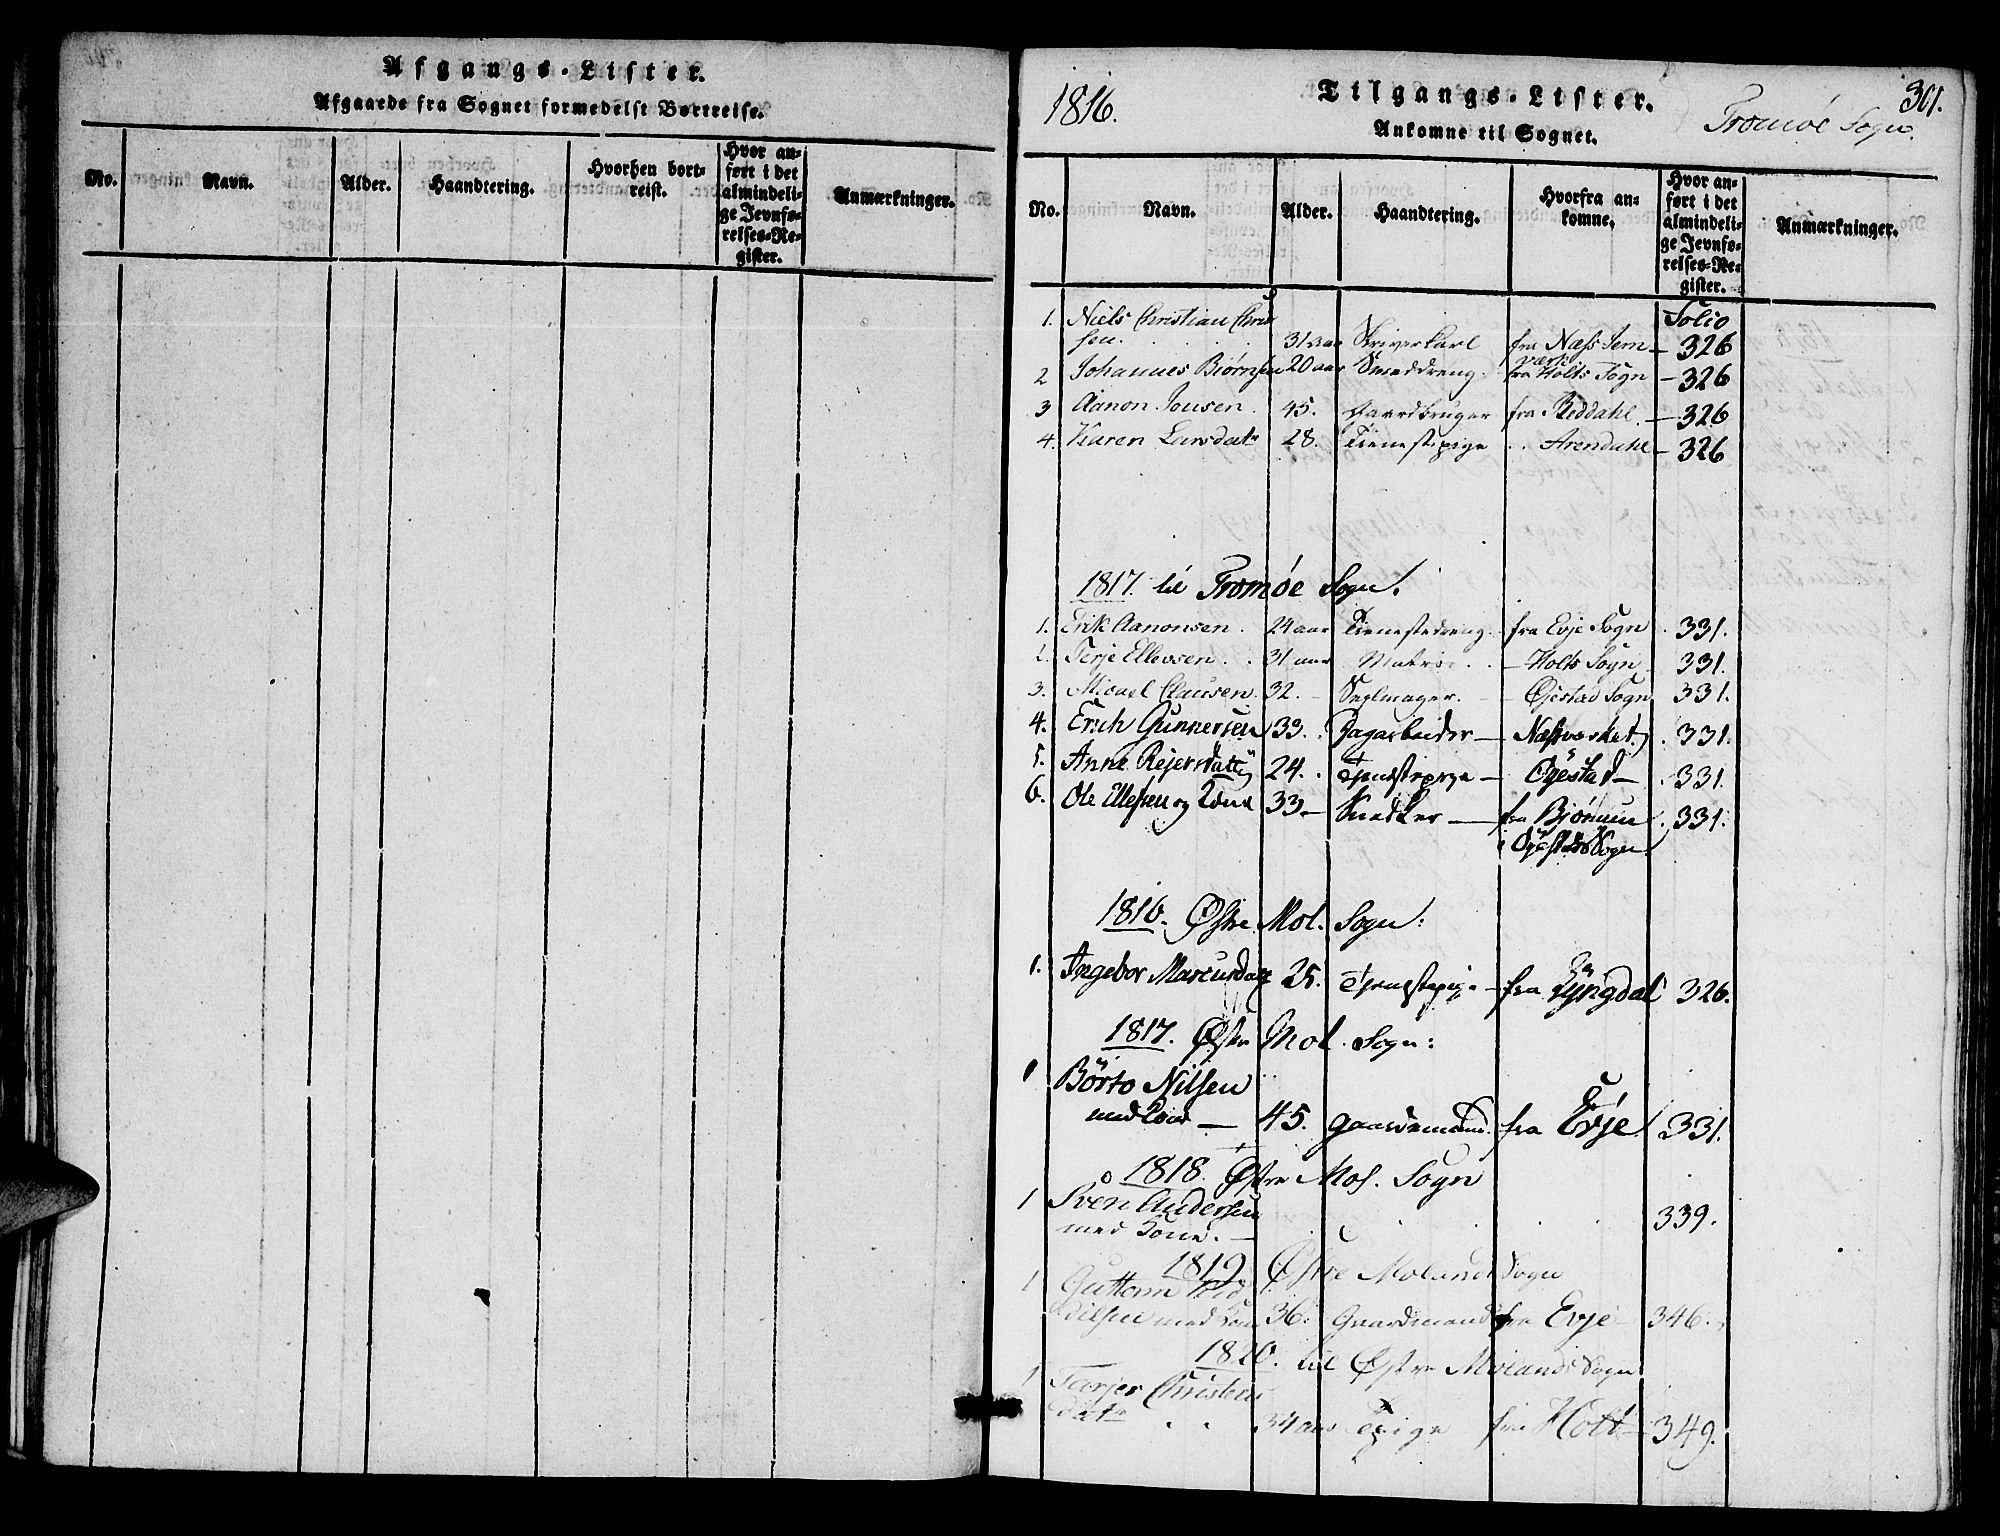 Afgangs-Lister.
Afgaaede fra Sognet formedelst Bortreise.
No. Navn. Alder. Haandtering. Hvorhen bortreist. Hvor anført i det almindelige Jevnførelses-Register. Anmærkninger.
1816. Tilgangs-Lister. 301.
Ankomne til Sognet. Tromøe Sogn.
No. Navn. Alder. Haandtering. Hvorfra ankomne. Hvor anført i det almindelige Jevnførelses-Register. Anmærkninger.
Folio
1. Niels Christian Chris
sen. 31 aar Skriverkarl fra Næss Jern 326
værk
2 Johannes Biørnsen 20 aar Smeddreng. fra Holts Sogn 326
3 Aanon Jonsen. 45. Gaardbruger fra Reddahl. 326
4. Karen Larsdatr 28. Tienestepige .. Arendahl 326
1817. til Tromøe Sogn.
1. Erik Aanonsen. 24 aar Tienestedreng. fra Evje Sogn. 331.
2. Terje Ellevsen. 31 aar Matros. - Holts Sogn 331.
3. Micael Clausen. 32. - Seglmager. - Øjestad Sogn 331.
4. Erich Gunnersen 33. Dagarbeider - Næsværket. 331.
5. Anne Rejersdatter 24. Tjenestepige - Øjestad - 331.
6. Ole Ellefsen og Kone 33 - Snedker - fra Bjørnum 331.
i Øjestads Sogn.
1816. Østre Mol. Sogn:
1. Ingebor Marcusdatr 25. Tjenestepige - fra Lyngdal 326.
1817. Østr Mol. Sogn:
1 Børto Nilsen
med Kone - 45. Gaardemand. fra Evje 331.
1818. Østre Mol. Sogn
1 Sven Andersen
med Kone. - 339.
1819. Østre Molands Sogn
1 Guttorm
med Kone 36. Gaardmand fra Evje 346.
1820. til Østre Molands Sogn
1 Tarjer Christens
datr 34 aar Tpige fra Holt 349.